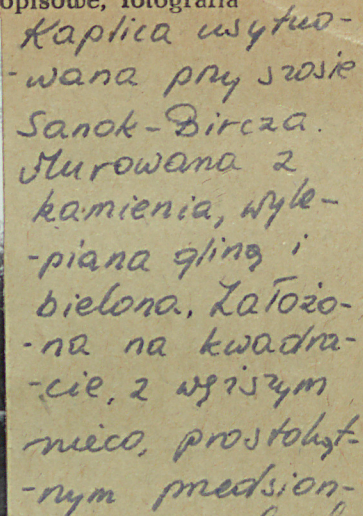 opisowe, fotografia
Kaplica usytuo-
-wana przy szosie
Sanok-Bircza.
Murowana z
kamienia, wyle-
-piana gliną i
bielona. Założo-
-na na kwadra-
-cie, z węższym
nieco, prostokąt-
-nym przedsion-